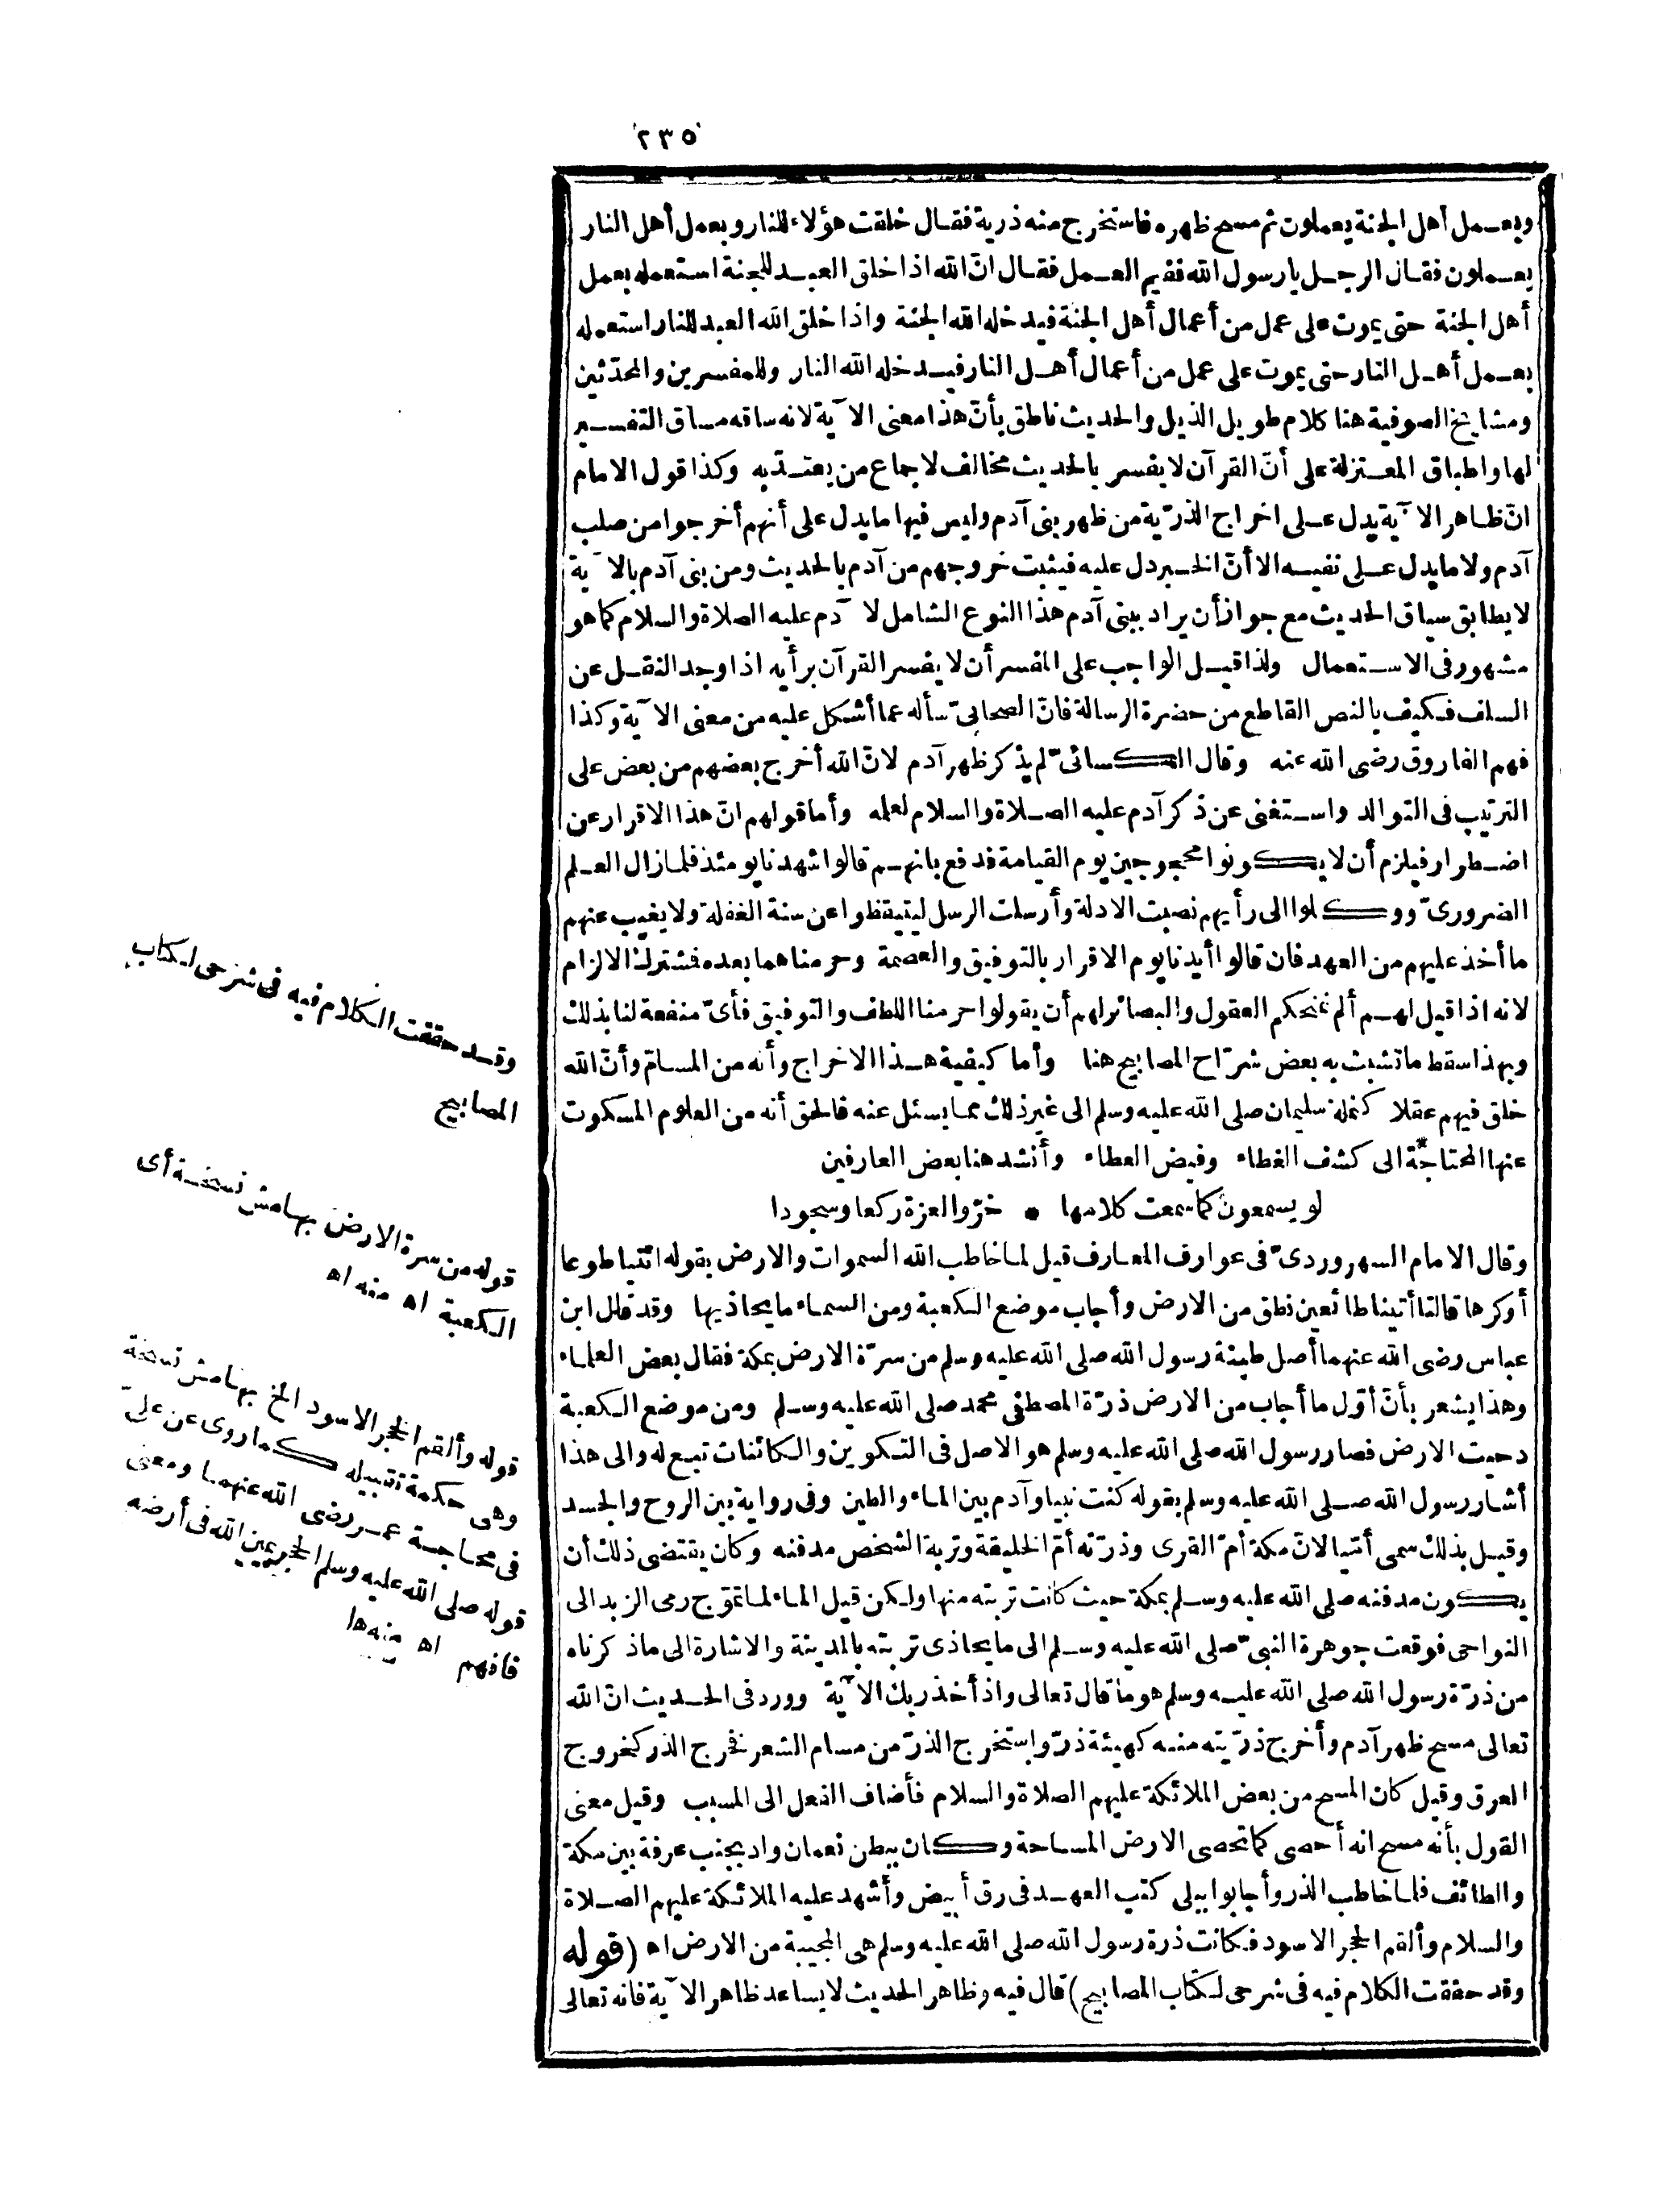 ٢٣٥
وبعمل أهل الجنة يعملون ثم مسح ظهره فاستخرج منه ذرية فقال خلقت هؤلاء للنار وبعمل أهل النار
يعملون فقال الرجل يا رسول الله ففيم العمل فقال انّ الله اذا خلق العبد للجنة استعمله بعمل
أهل الجنة حتى يموت على عمل من أعمال أهل الجنة فيدخله الله الجنة واذا خلق الله العبد للنار استعمله
بعمل أهل النار حتى يموت على عمل من أعمال أهل النار فيدخله الله النار وللمفسرين والمحدّثين
ومشايخ الصوفية هنا كلام طويل الذيل والحديث ناطق بأنّ هذا معنى الآية لانه ساقه مساق التفسير
لها واطباق المعتزلة على أنّ القرآن لا يفسر بالحديث مخالف لاجماع من يعتدّ به وكذا قول الامام
انّ ظاهر الآية يدل على اخراج الذرّية من ظهر بنى آدم وليس فيها ما يدل على أنهم أخرجوا من صلب
آدم ولا ما يدل على نفيه الا أنّ الخبر دل عليه فيثبت خروجهم من آدم بالحديث ومن بنى آدم بالآية
لا يطابق سياق الحديث مع جواز أن يراد ببنى آدم هذا النوع الشامل لآدم عليه الصلاة والسلام كما هو
مشهور فى الاستعمال ولذا قيل الواجب على المفسر أن لا يفسر القرآن برأيه اذا وجد النقل عن
السلف فكيف بالنص القاطع من حضرة الرسالة فانّ الصحابىّ سأله عما أشكل عليه من معنى الآية وكذا
فهم الفاروق رضى الله عنه وقال الكسائىّ لم يذكر ظهر آدم لانّ الله أخرج بعضهم من بعض على
الترتيب فى التوالد واستغنى عن ذكر آدم عليه الصلاة والسلام لعلمه وأما قولهم انّ هذا الاقرار عن
اضطرار فيلزم أن لا يكونوا محجوجين يوم القيامة فدفع بانهم قالوا شهدنا يومئذ فلما زال العلم
الضرورىّ ووكلوا الى رأيهم نصبت الادلة وأرسلت الرسل ليتيقظوا عن سنة الغفلة ولا يغيب عنهم
ما أخذ عليهم من العهد فان قالوا أيدنا يوم الاقرار بالتوفيق والعصمة وحرمناهما بعده فشترك الالزام
لانه اذا قيل لهم ألم نمنحكم العقول والبصائر لهم أن يقولوا حرمنا اللطف والتوفيق فأىّ منفعة لنا بذلك
وبهذا سقط ما تشبث به بعض شرّاح المصابيح هنا وأما كيفية هذا الاخراج وأنه من المسامّ وأنّ الله
خلق فيهم عقلا كنملة سليمان صلى الله عليه وسلم الى غير ذلك مما يسئل عنه فالحق أنه من العلوم المسكوت
عنها المحتاجة الى كشف الغطاء وفيض العطاء وأنشد هنا بعض العارفين
لو يسمعون كما سمعت كلامها • خرّوا لعزة ركعا وسجودا
وقال الامام السهروردىّ فى عوارف المعارف قيل لما خاطب الله السموات والارض بقوله ائتيا طوعا
أو كرها قالتا أتينا طائعين نطق من الارض وأجاب موضع الكعبة ومن السماء ما يحاذيها وقد قال ابن
عباس رضى الله عنهما أصل طينة رسول الله صلى الله عليه وسلم من سرّة الارض بمكة فقال بعض العلماء
وهذا يشعر بأنّ أوّل ما أجاب من الارض ذرّة المصطفى محمد صلى الله عليه وسلم ومن موضع الكعبة
دحيت الارض فصار رسول الله صلى الله عليه وسلم هو الاصل فى التكوين والكائنات تبع له والى هذا
أشار رسول الله صلى الله عليه وسلم بقوله كنت نبيا وآدم بين الماء والطين وفى رواية بين الروح والجسد
وقيل بذلك سمى أمّيا لانّ مكة أمّ القرى وذرّته أمّ الخليقة وتربة الشخص مدفنه وكان يقتضى ذلك أن
يكون مدفنه صلى الله عليه وسلم بمكة حيث كانت تربته منها ولكن قيل الماء لما تموّج رمى الزبد الى
النواحى فوقعت جوهرة النبىّ صلى الله عليه وسلم الى ما يحاذى تربته بالمدينة والاشارة الى ما ذكرناه
من ذرّة رسول الله صلى الله عليه وسلم هو ما قال تعالى واذ أخذ ربك الآية وورد فى الحديث انّ الله
تعالى مسح ظهر آدم وأخرج ذرّيته منه كهيئة ذرّ واستخرج الذرّ من مسام الشعر فخرج الذر كخروج
العرق وقيل كان المسح من بعض الملائكة عليهم الصلاة والسلام فأضاف الفعل الى المسبب وقيل معنى
القول بأنه مسح انه أحصى كما تحصى الارض المساحة وكان ببطن نعمان واد بجنب عرفة بين مكة
والطائف فلما خاطب الذر وأجابوا ببلى كتب العهد فى رق أبيض وأشهد عليه الملائكة عليهم الصلاة
والسلام وألقم الحجر الاسود فكانت ذرة رسول الله صلى الله عليه وسلم هى المجيبة من الارض اه (قوله
وقد حققت الكلام فيه فى شرحى لكتاب المصابيح) قال فيه وظاهر الحديث لا يساعد ظاهر الآية فانه تعالى
وقد حققت الكلام فيه فى شرحى لكتاب
المصابيح
قوله من سرة الارض بهامش نسخة أى
الكعبة اه منه اه
قوله وألقم الحجر الاسود الخ بهامش نسخة
وهى حكمة تقبيله كما روى عن علىّ
فى محاجة عمر رضى الله عنهما ومعنى
قوله صلى الله عليه وسلم الحجر يمين الله فى أرضه
فافهم اه منه